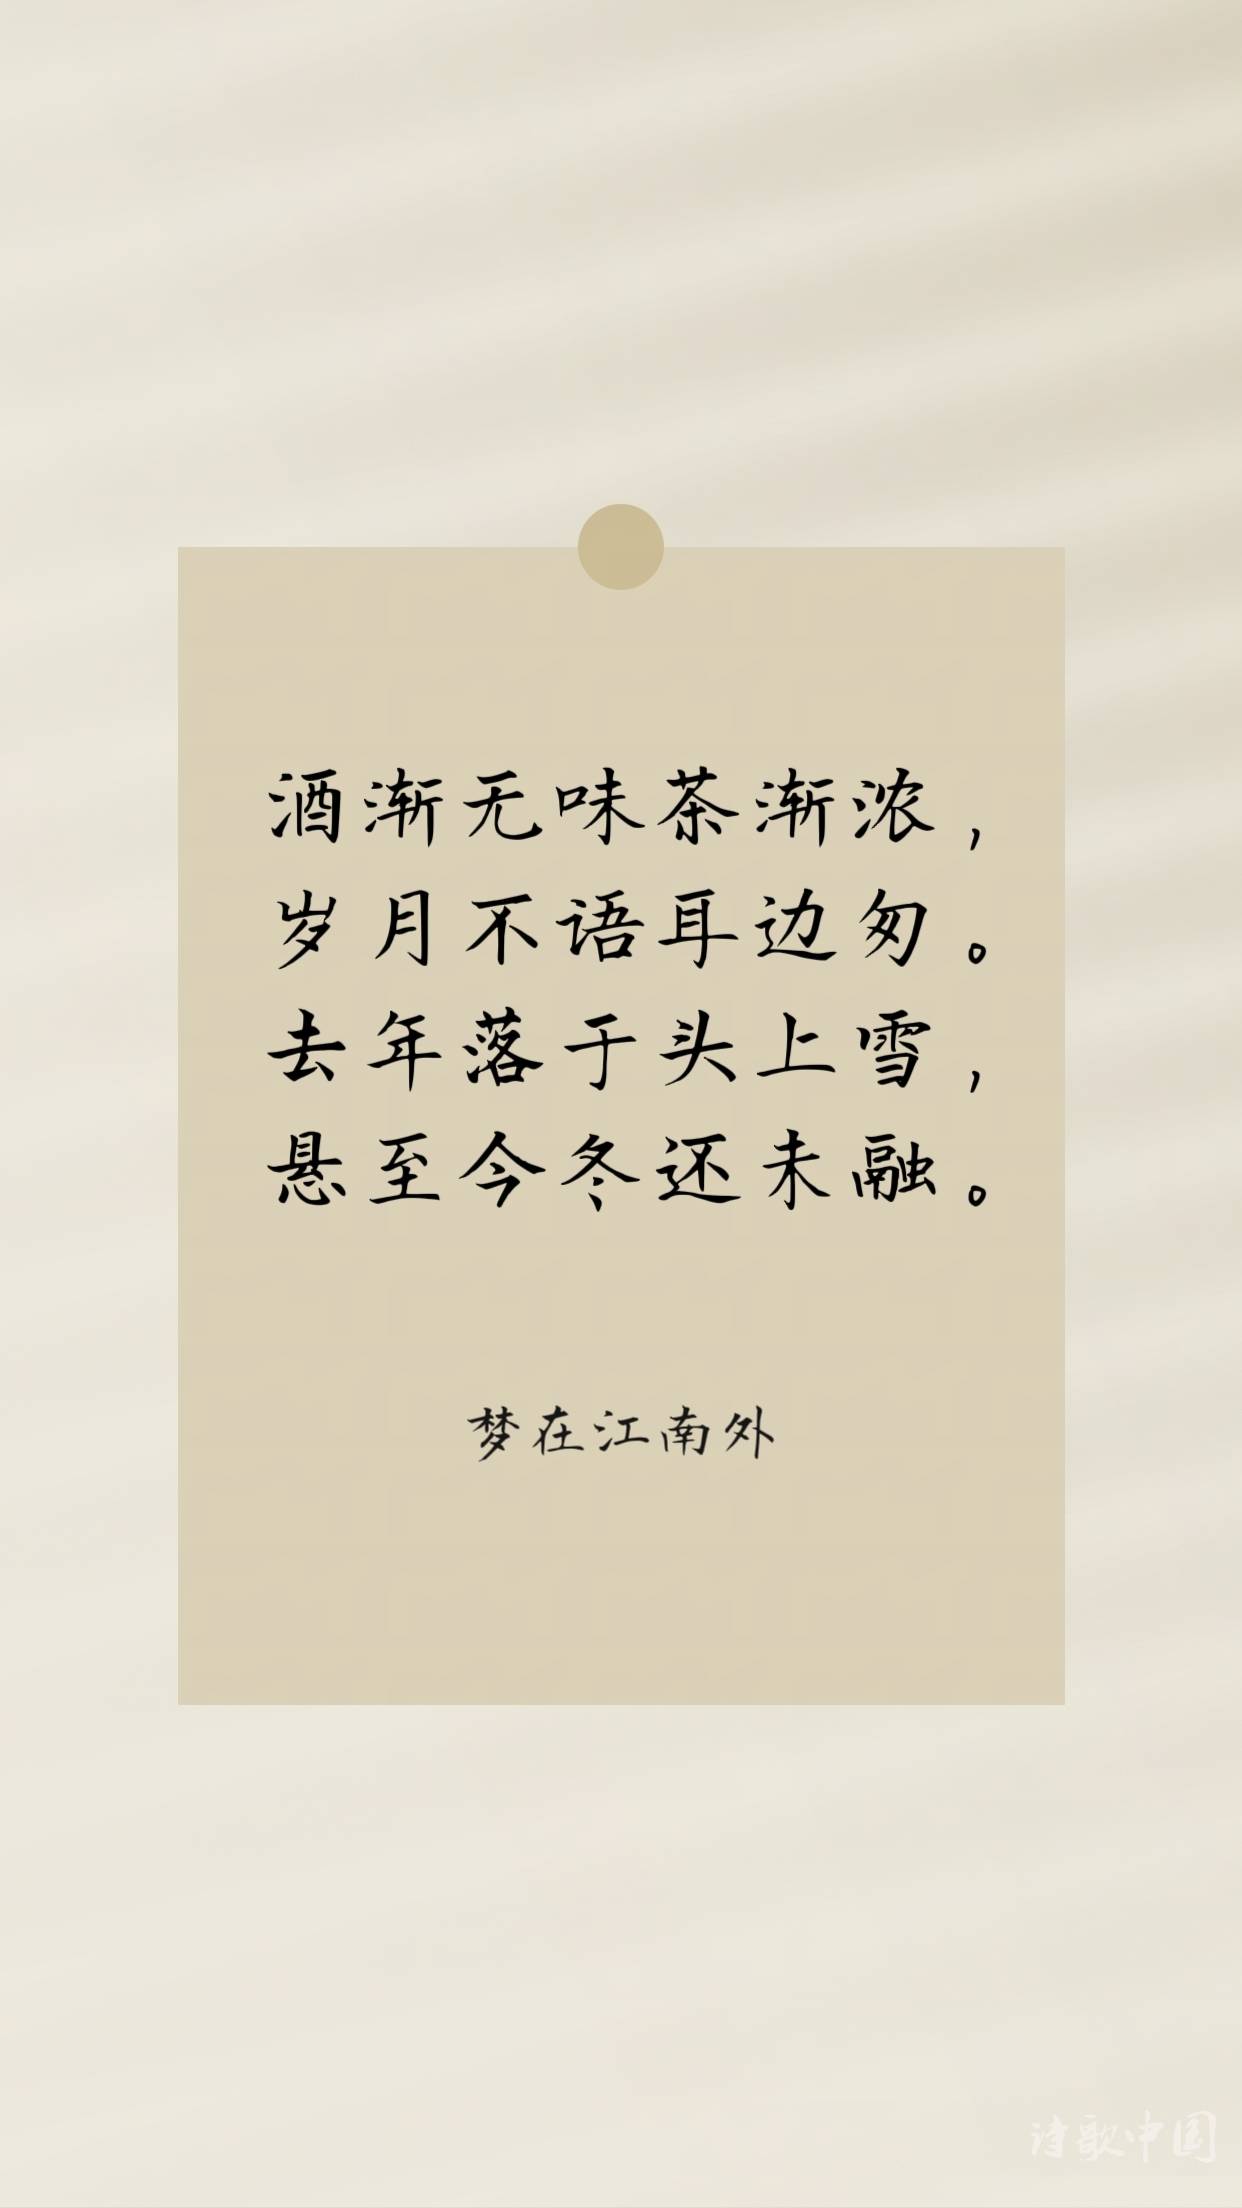 酒渐无味茶渐浓，
岁月不语耳边匆。
去年落于头上雪，
悬至今冬还未融。
梦在江南外
诗歌中国